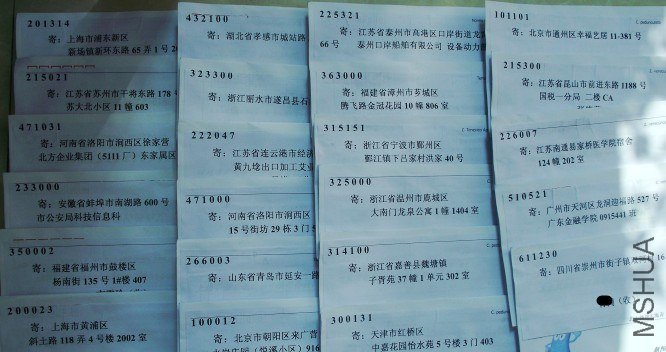 201314
寄：上海市浦东新区
新场镇新环东路 65 弄 1 号
215021
寄：江苏省苏州市干将东路 178 号
苏大北小区 11 幢 603
471031
寄：河南省洛阳市涧西区徐家营
北方企业集团（5111 厂）东家属区
233000
寄：安徽省蚌埠市南湖路 600 号
市公安局科技信息科
350002
寄：福建省福州市鼓楼区
杨南街 135 号 1#楼 407
200023
寄：上海市黄浦区
斜土路 118 弄 4 号楼 2002 室
432100
寄：湖北省孝感市城站路
323300
寄：浙江丽水市遂昌县石
222047
寄：江苏省连云港市经济
黄九埝出口加工
471000
寄：河南省洛阳市涧西区
15 号街坊 29 栋 3 门 5
266003
寄：山东省青岛市延安一路
100012
寄：北京市朝阳区来广营
225321
寄：江苏省泰州市高港区口岸街道龙
66 号 泰州口岸船舶有限公司 设备动力
363000
寄：福建省漳州市芗城区
腾飞路金冠花园 10 幢 806 室
315151
寄：浙江省宁波市鄞州区
鄞江镇下吕家村洪家 40 号
325000
寄：浙江省温州市鹿城区
大南门龙泉公寓 1 幢 1404 室
314100
寄：浙江省嘉善县魏塘镇
子胥苑 37 幢 1 单元 302 室
300131
寄：天津市红桥区
中嘉花园怡水苑 5 号楼 3 门 403
101101
寄：北京市通州区幸福艺居 11-381 号
215300
寄：江苏省昆山市前进东路 1188 号
国税一分局 二楼 CA
226007
寄：江苏南通县家桥医学院宿舍
124 幢 202 室
510521
寄：广州市天河区龙洞迎福路 527 号
广东金融学院 0915441 班
611230
寄：四川省崇州市街子镇 16
（收）
MSHUA